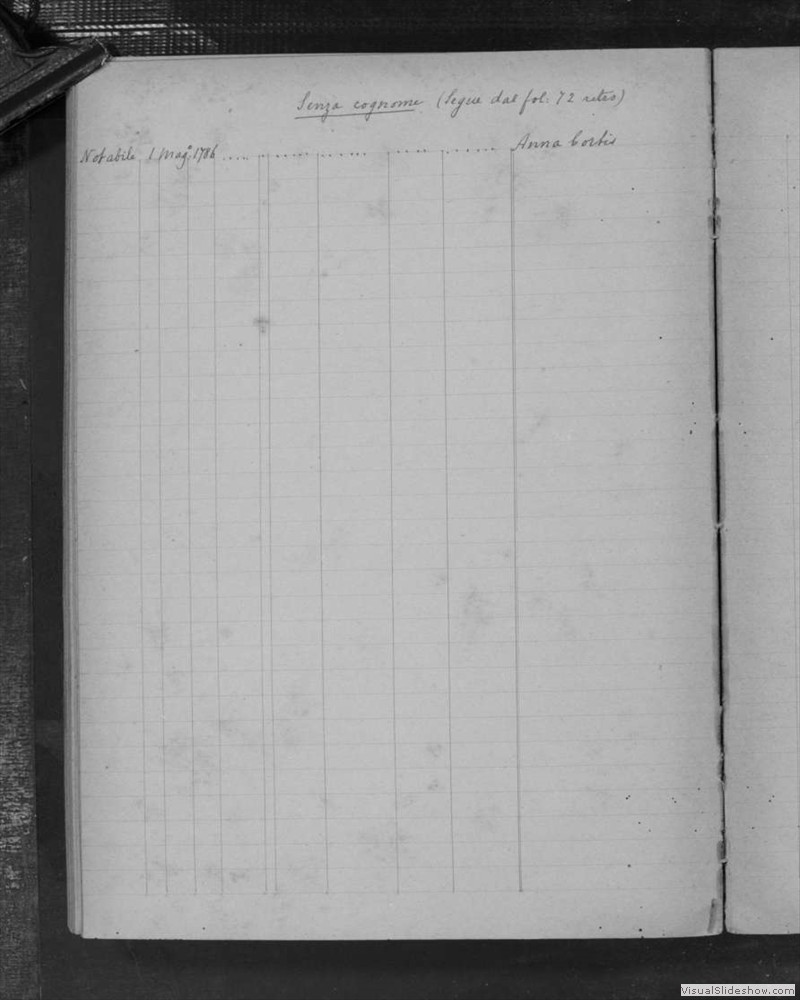 Senza cognome (Segue dal fol: 72 retro)
Notabile 1 Mago. 1786 .... ....... ....... ..... ...... Anna Cortis
VisualSlideshow.com